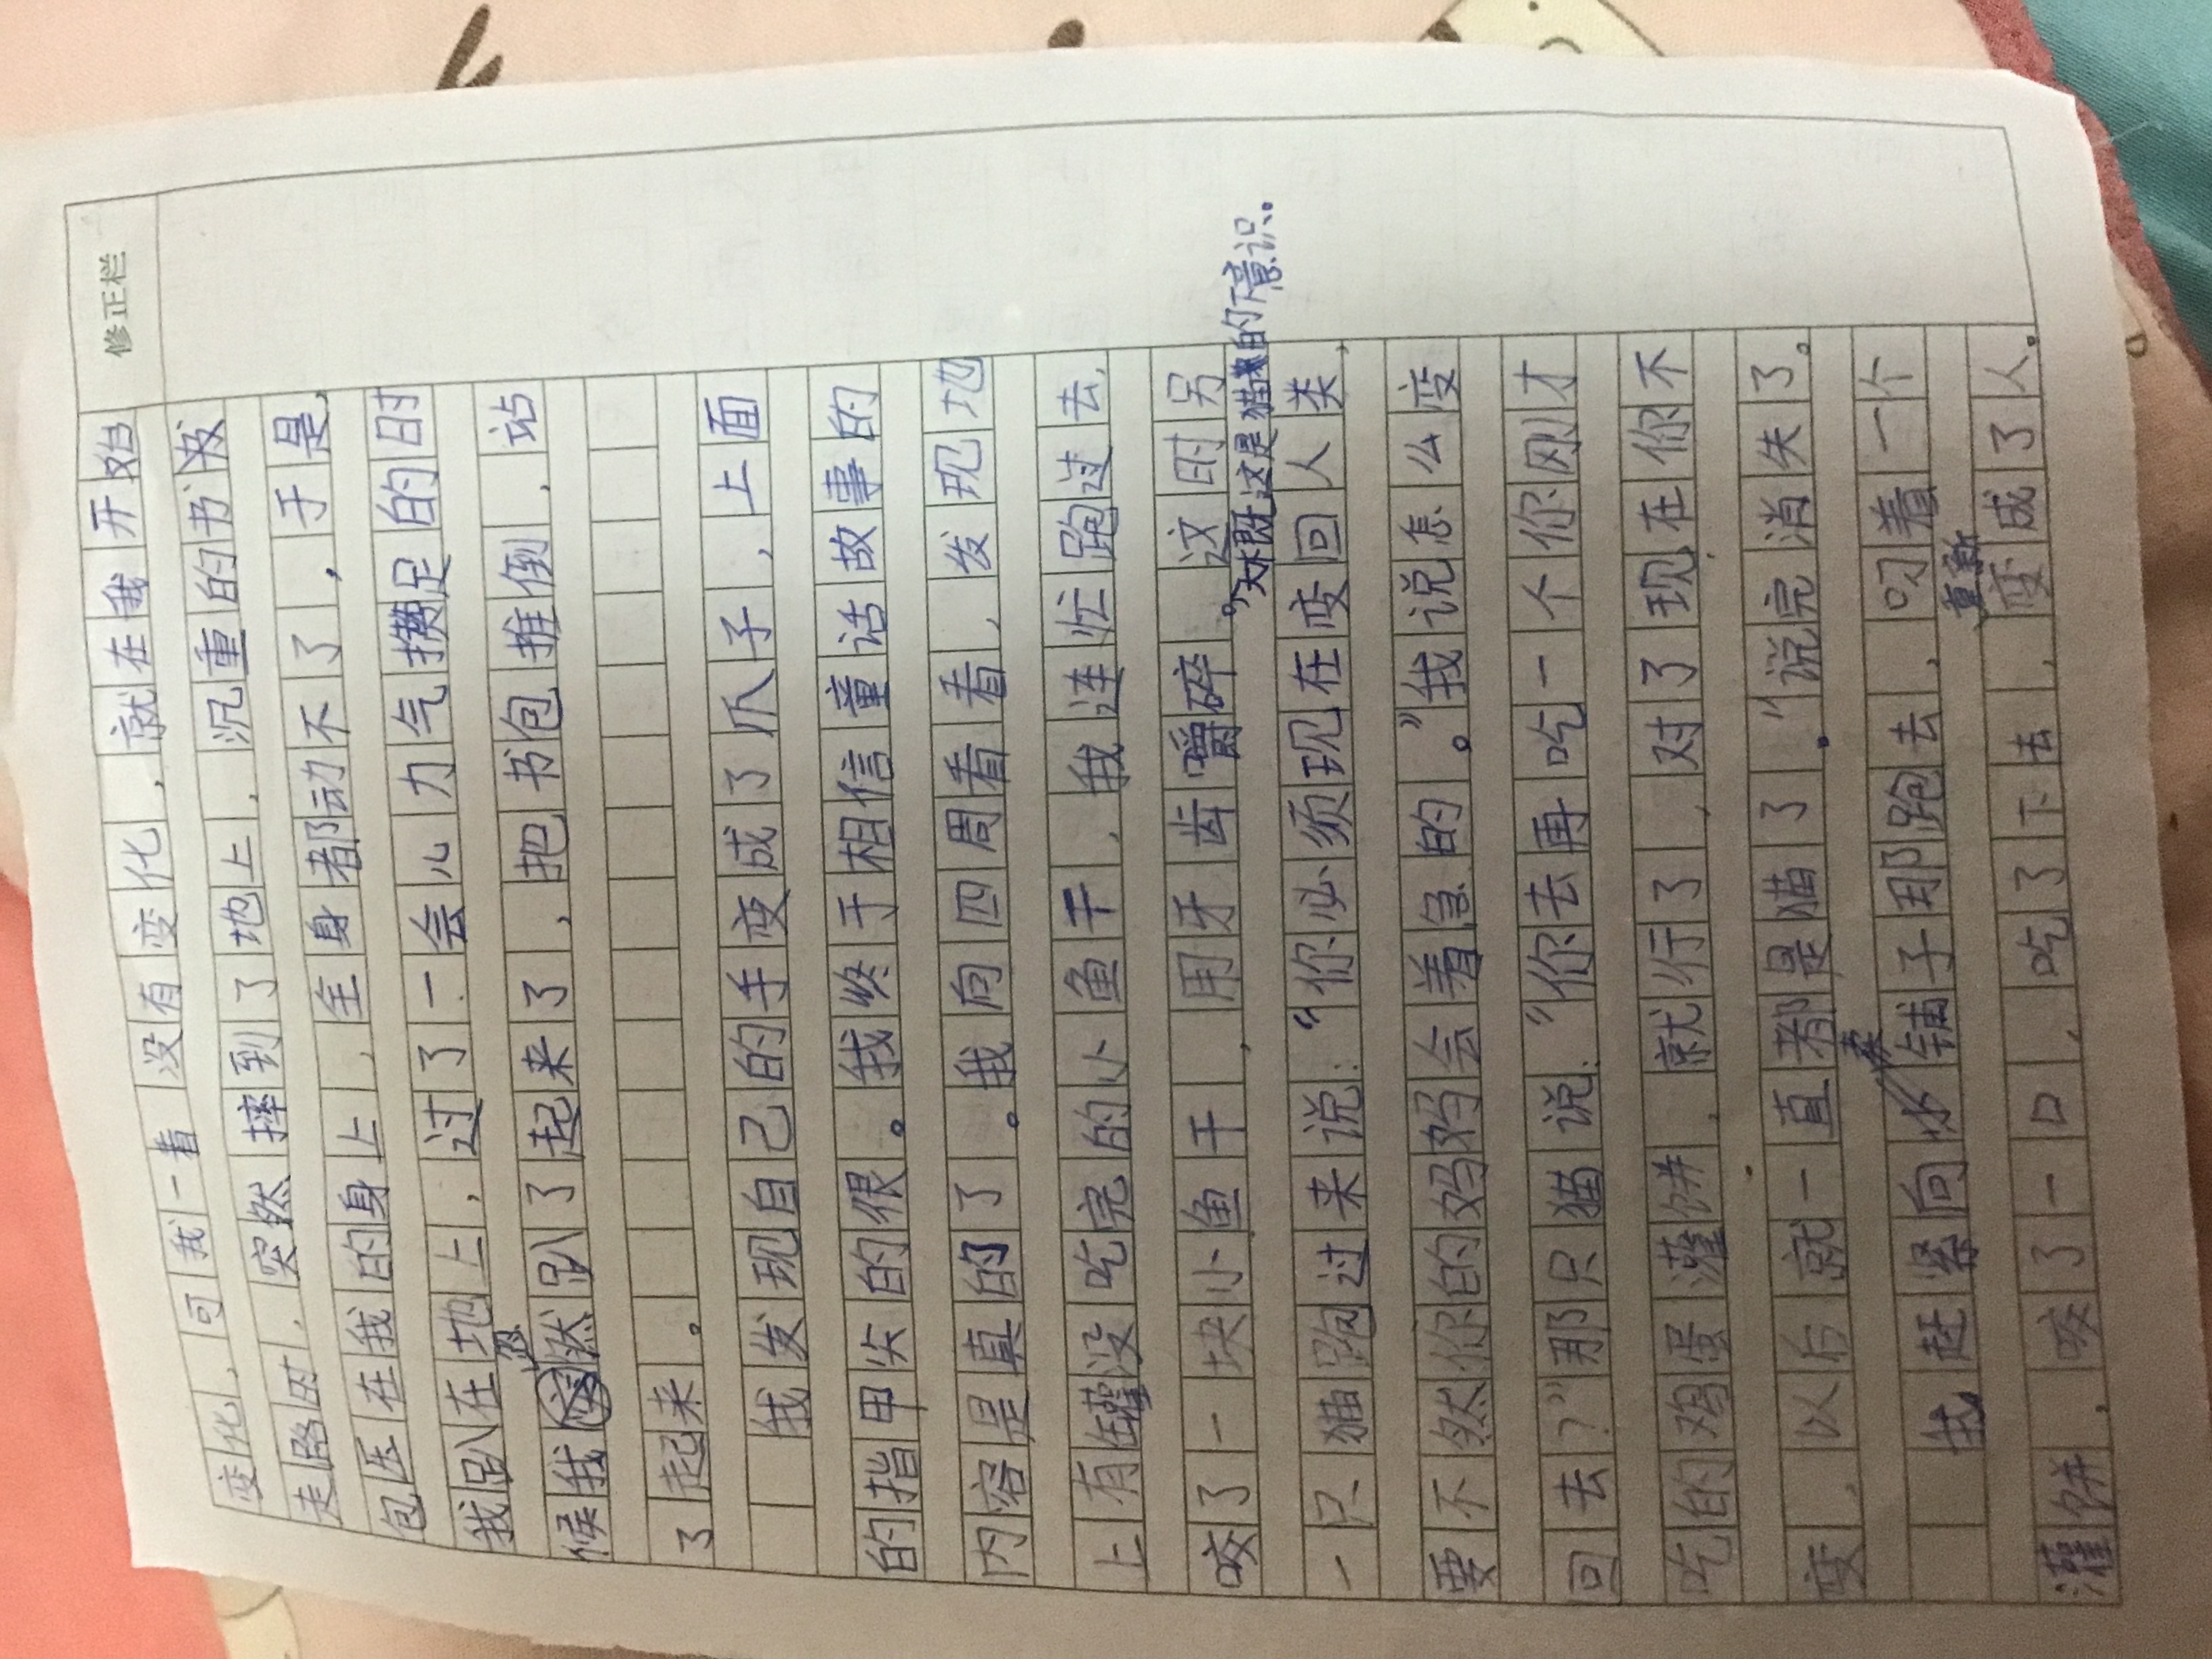 修正栏
变化，可我一看没有变化，就在我开始
走路时，突然摔到了地上，沉重的书
包压在我的身上，全身都动不了，于是，
我趴在地上，过了一会儿力气攒足的时
忽
候我然趴了起来了，把书包推倒，站
了起来。
我发现自己的手变成了爪子，上面
的指甲尖的很。我终于相信童话故事的
内容是真的了。我向四周看看，发现地
上有罐没吃完的小鱼干，我连忙跑过去，
咬了一块小鱼干，用牙齿嚼碎。这时另
大概这是猫的下意识。
一只猫跑过来说：“你必须现在变回人类，
要不然你的妈妈会着急的。”我说怎么变
回去？”那只猫说：“你去再吃一个你刚才
吃的鸡蛋灌饼，就行了，对了现在你不
变，以后就一直都是猫了。”说完消失了。
我赶紧向铺子那跑去，叼着一个
重新
灌饼，咬了一口，吃了下去，变成了人。